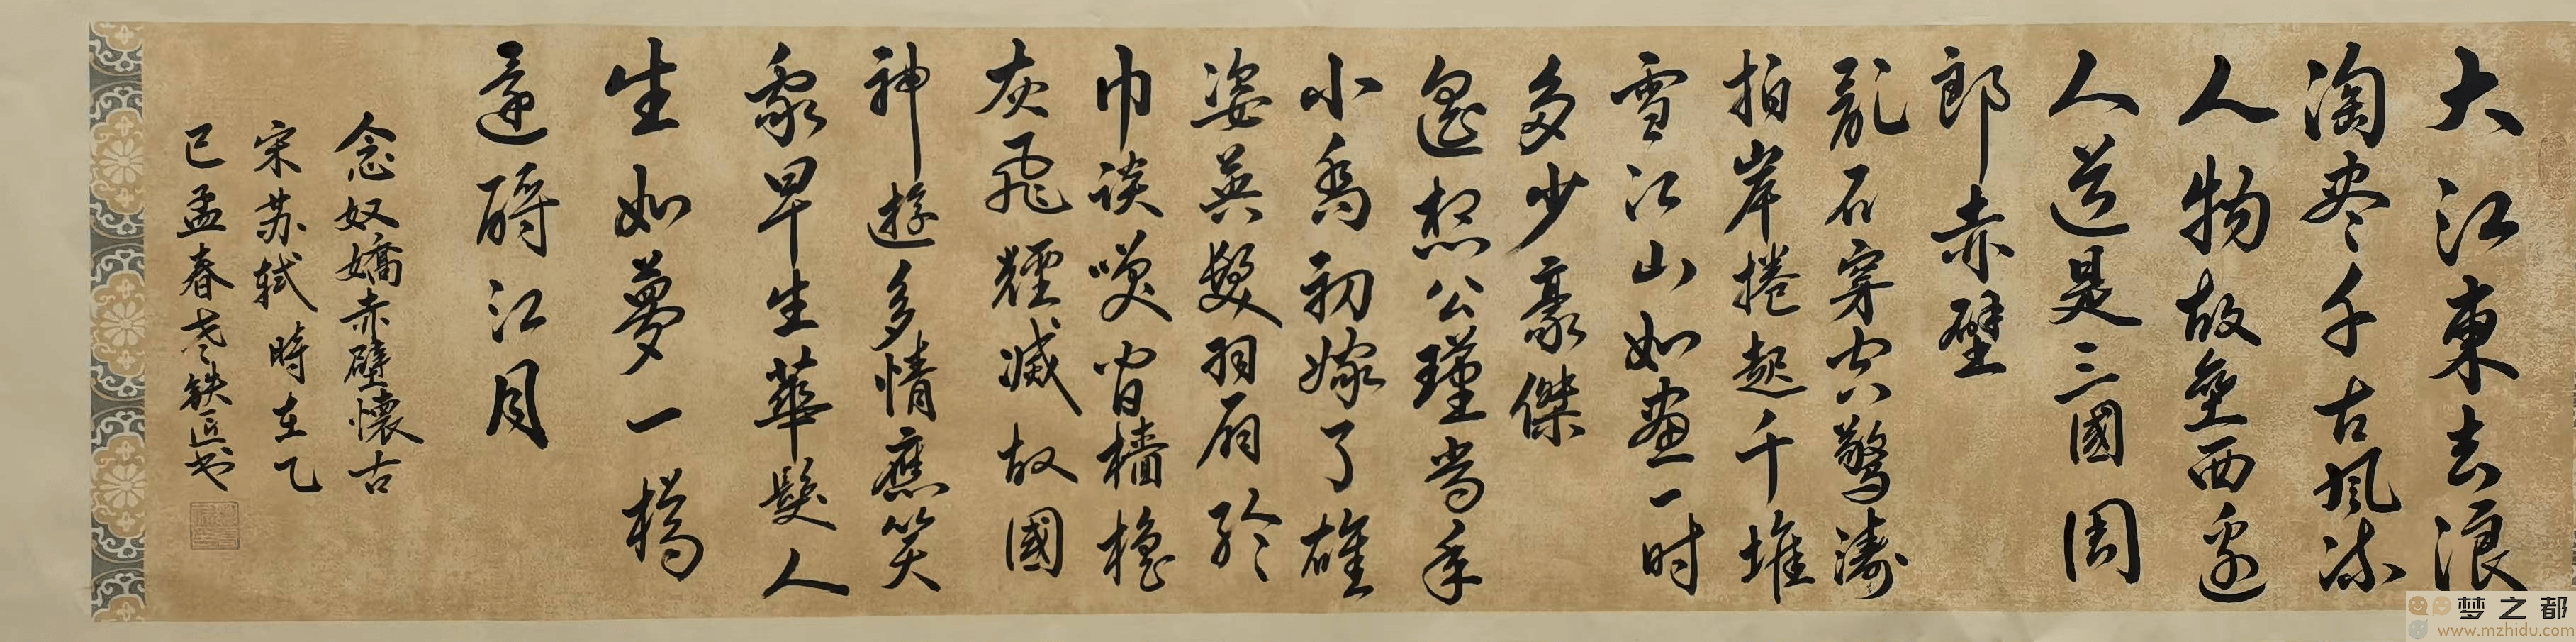 大江東去浪
淘尽千古風流
人物故壘西邊
人道是三國周
郎赤壁
亂石穿空驚濤
拍岸捲起千堆
雪江山如畫一时
多少豪傑
遥想公瑾當年
小喬初嫁了雄
姿英發羽扇綸
巾談咲間檣櫓
灰飛煙滅故國
神遊多情應笑
我早生華髮人
生如夢一樽
還酹江月
念奴嬌赤壁懷古
宋苏轼時在乙
巳孟春老铁匠书
梦之都
www.mzhidu.com